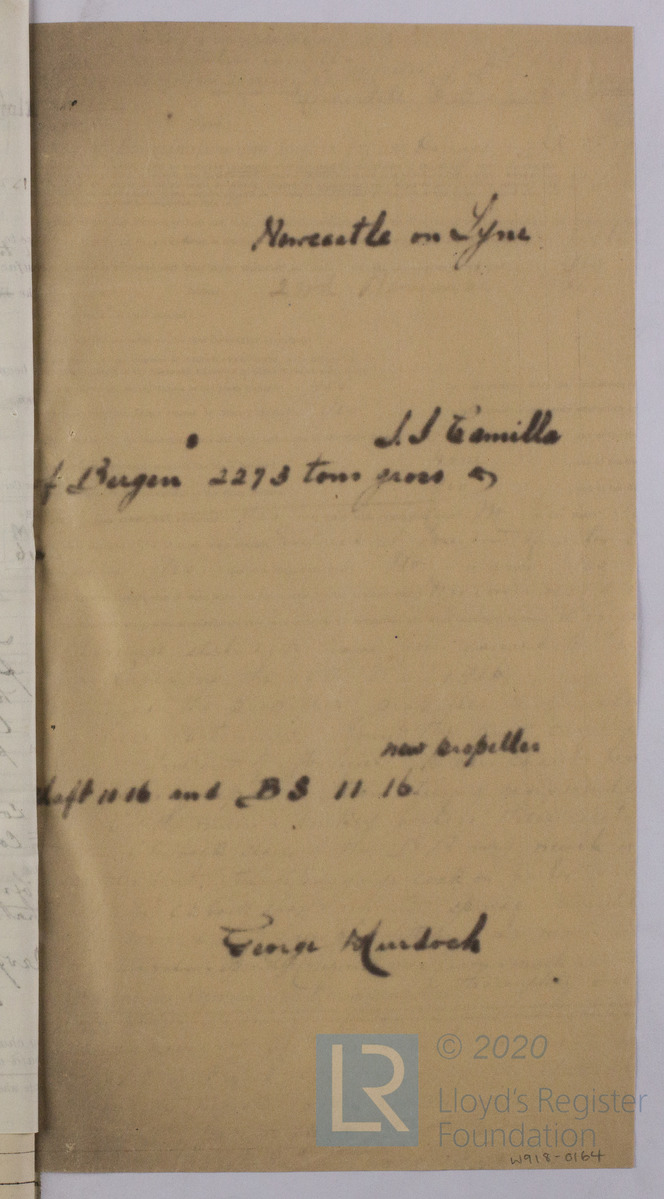 Newcastle on Tyne
S.S Camilla
of Bergen 2273 tons gross
new propeller
shaft 11 16 and BS 11 16
George Murdoch
LR
© 2020
Lloyd's Register
Foundation
W918-0164